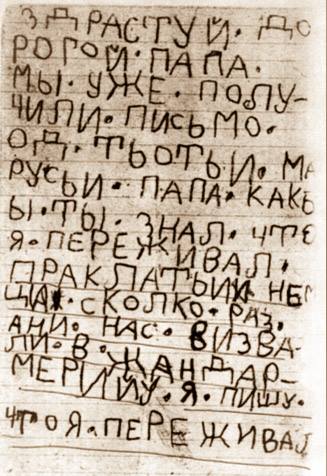 ЗДРАСТУЙ. ДО
РОГОЙ. ПАПА.
МЫ. УЖЕ. ПОЛУ-
ЧИЛИ. ПИСЬМО.
ОД. ТЬОТЬИ. МА
РУСЬИ. ПАПА. КАКЪ
Ы. ТЫ. ЗНАЛ. ЧТО
Я. ПЕРЕЖИВАЛ.
ПРАКЛАТЫИ НЕМ
ЦА. СКОЛКО. РАЗ.
АНИ. НАС. ВИЗВА-
ЛИ. В. ЖАНДАР-
МЕРИЙУ. Я. ПИШУ.
ЧТО Я. ПЕРЕЖИВАЛ